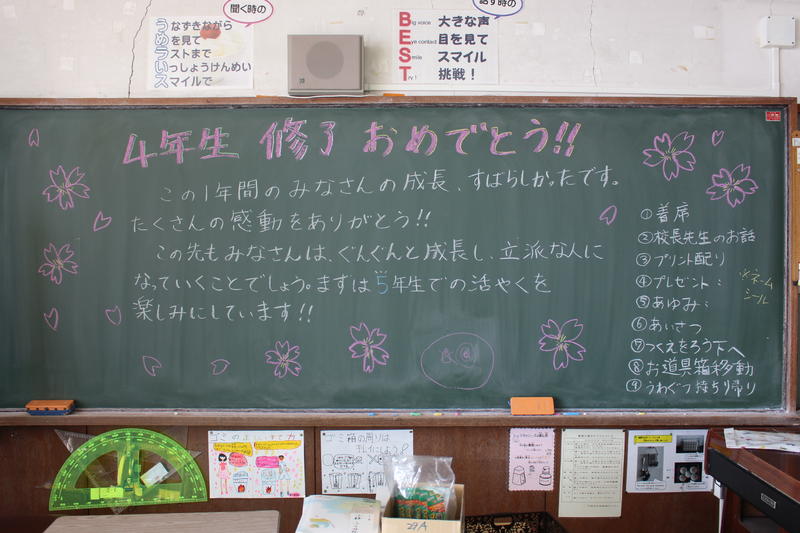 聞く時の
うなずきながら
めを見て
ラストまで
いっしょうけんめい
スマイルで
話す時の
BEST
Big voice 大きな声
Eye contact 目を見て
Smile スマイル
挑戦！
4年生 修了 おめでとう!!
この1年間のみなさんの成長、すばらしかったです。
たくさんの感動をありがとう!!
この先もみなさんは、ぐんぐんと成長し、立派な人に
なっていくことでしょう。まずは5年生での活やくを
楽しみにしています!!
①着席
②校長先生のお話
③プリント配り
④プレゼント：
※ネームシール
⑤あゆみ：
⑥あいさつ
⑦つくえをろう下へ
⑧お道具箱移動
⑨うわぐつ持ち帰り
ゴミ箱の周りは
29A